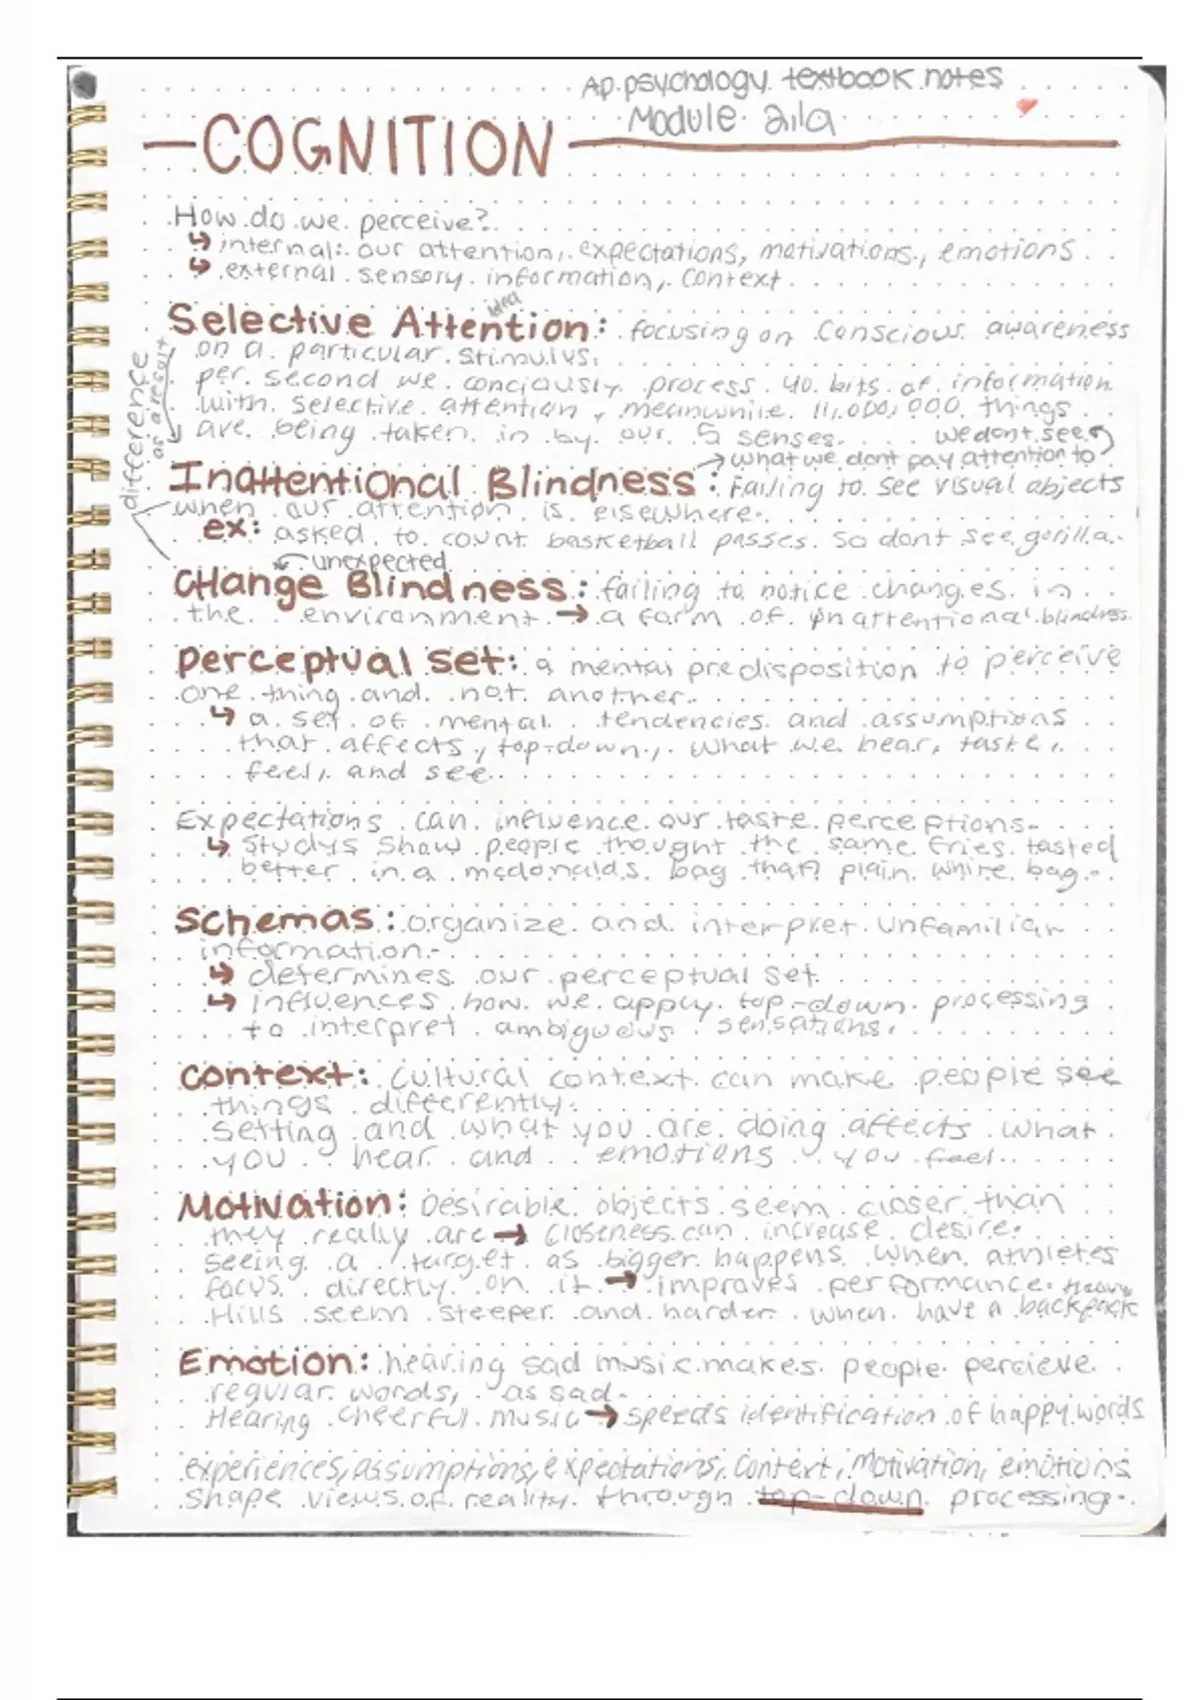 AP psychology textbook notes
Module 2.1a
COGNITION
How do we perceive?
↳ internal: our attention, expectations, motivations, emotions
↳ external sensory information, context
idea
Selective Attention: focusing on conscious awareness
on a particular stimulus.
per second we conciously process 40 bits of information
with selective attention, meanwhile 11,000,000 things
are being taken in by our 5 senses.
difference
as a result
we dont see
→ what we dont pay attention to
Inattentional Blindness: Failing to see visual objects
when our attention is elsewhere.
ex: asked to count basketball passes so dont see gorilla.
unexpected
CHange Blindness: failing to notice changes in
the environment → a form of inattentional blindness.
perceptual set: a mental predisposition to perceive
one thing and not another.
↳ a set of mental tendencies and assumptions
that affects, top-down, what we hear, taste,
feel, and see.
Expectations can influence our taste perceptions.
↳ studys show people thought the same fries tasted
better in a mcdonalds bag than plain white bag.
Schemas: organize and interpret unfamiliar
information.
↳ determines our perceptual set
↳ influences how we apply top-down processing
to interpret ambiguous sensations.
context: cultural context can make people see
things differently.
setting and what you are doing affects what
you hear and emotions you feel.
Motivation: Desirable objects seem closer than
they really are → closeness can increase desire.
seeing a target as bigger happens when athletes
focus directly on it → improves performance. Heavy
Hills seem steeper and harder when have a backpack
Emotion: hearing sad music makes people percieve
regular words, as sad.
Hearing cheerful music → speeds identification of happy words
experiences, assumptions, expectations, context, motivation, emotions
shape views of reality through top-down processing.